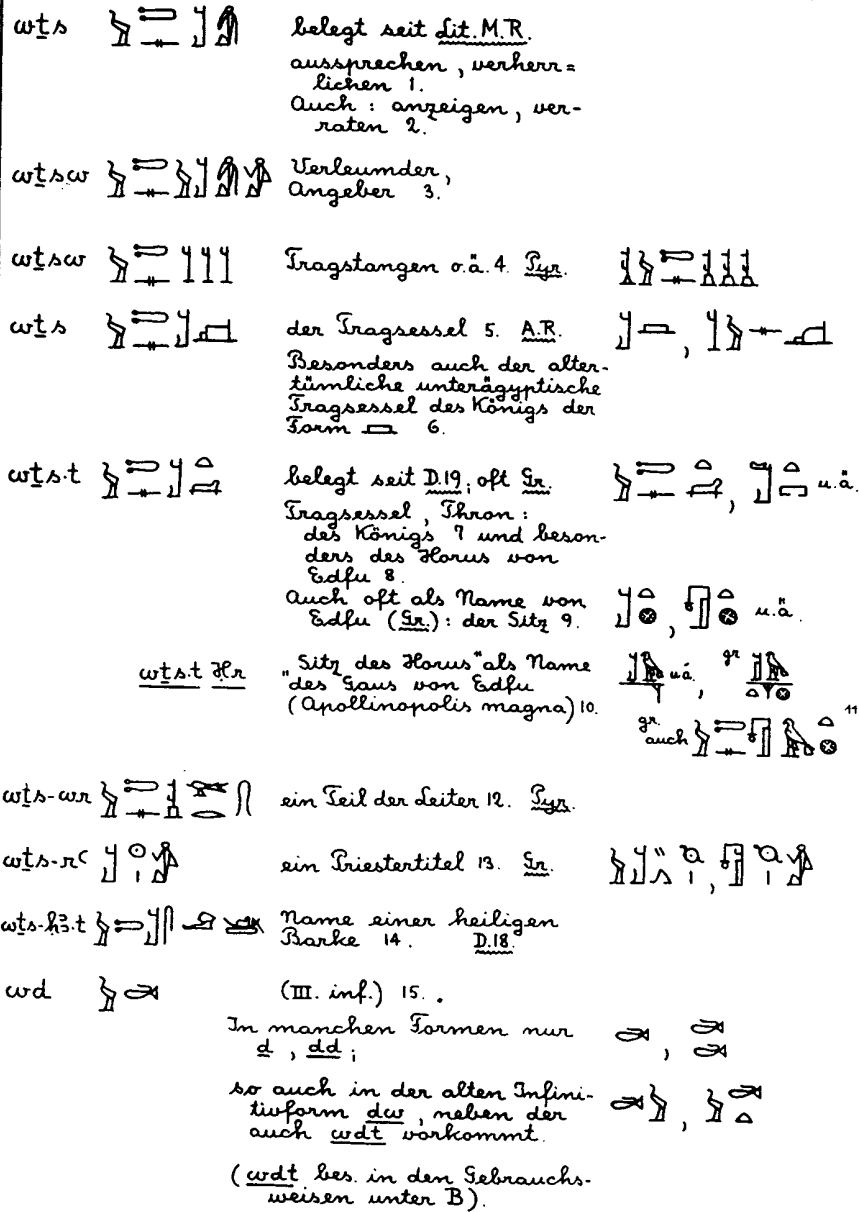 wṯs belegt seit Lit. M.R.
aussprechen, verherr=
lichen 1.
Auch: anzeigen, ver-
raten 2.
wṯsw Verleumder,
Angeber 3.
wṯsw Tragstangen o.ä. 4. Pyr.
wṯs der Tragsessel 5. A.R.
Besonders auch der alter-
tümliche unterägyptische
Tragsessel des Königs der
Form 6.
wṯs.t belegt seit D.19; oft Gr. u.ä.
Tragsessel, Thron:
des Königs 7 und beson-
ders des Horus von
Edfu 8.
Auch oft als Name von
Edfu (Gr.): der Sitz 9. u.ä.
wṯs.t Ḥr „Sitz des Horus" als Name u.ä., gr.
des Gaus von Edfu
(Apollinopolis magna) 10.
gr. auch 11
wṯs-wr ein Teil der Leiter 12. Pyr.
wṯs-rꜥ ein Priestertitel 13. Gr.
wṯs-ḥꜣ.t Name einer heiligen
Barke 14. D.18.
wd (III. inf.) 15.
In manchen Formen nur
d, dd;
so auch in der alten Infini-
tivform dw, neben der
auch wdt vorkommt.
(wdt bes. in den Gebrauchs-
weisen unter B).